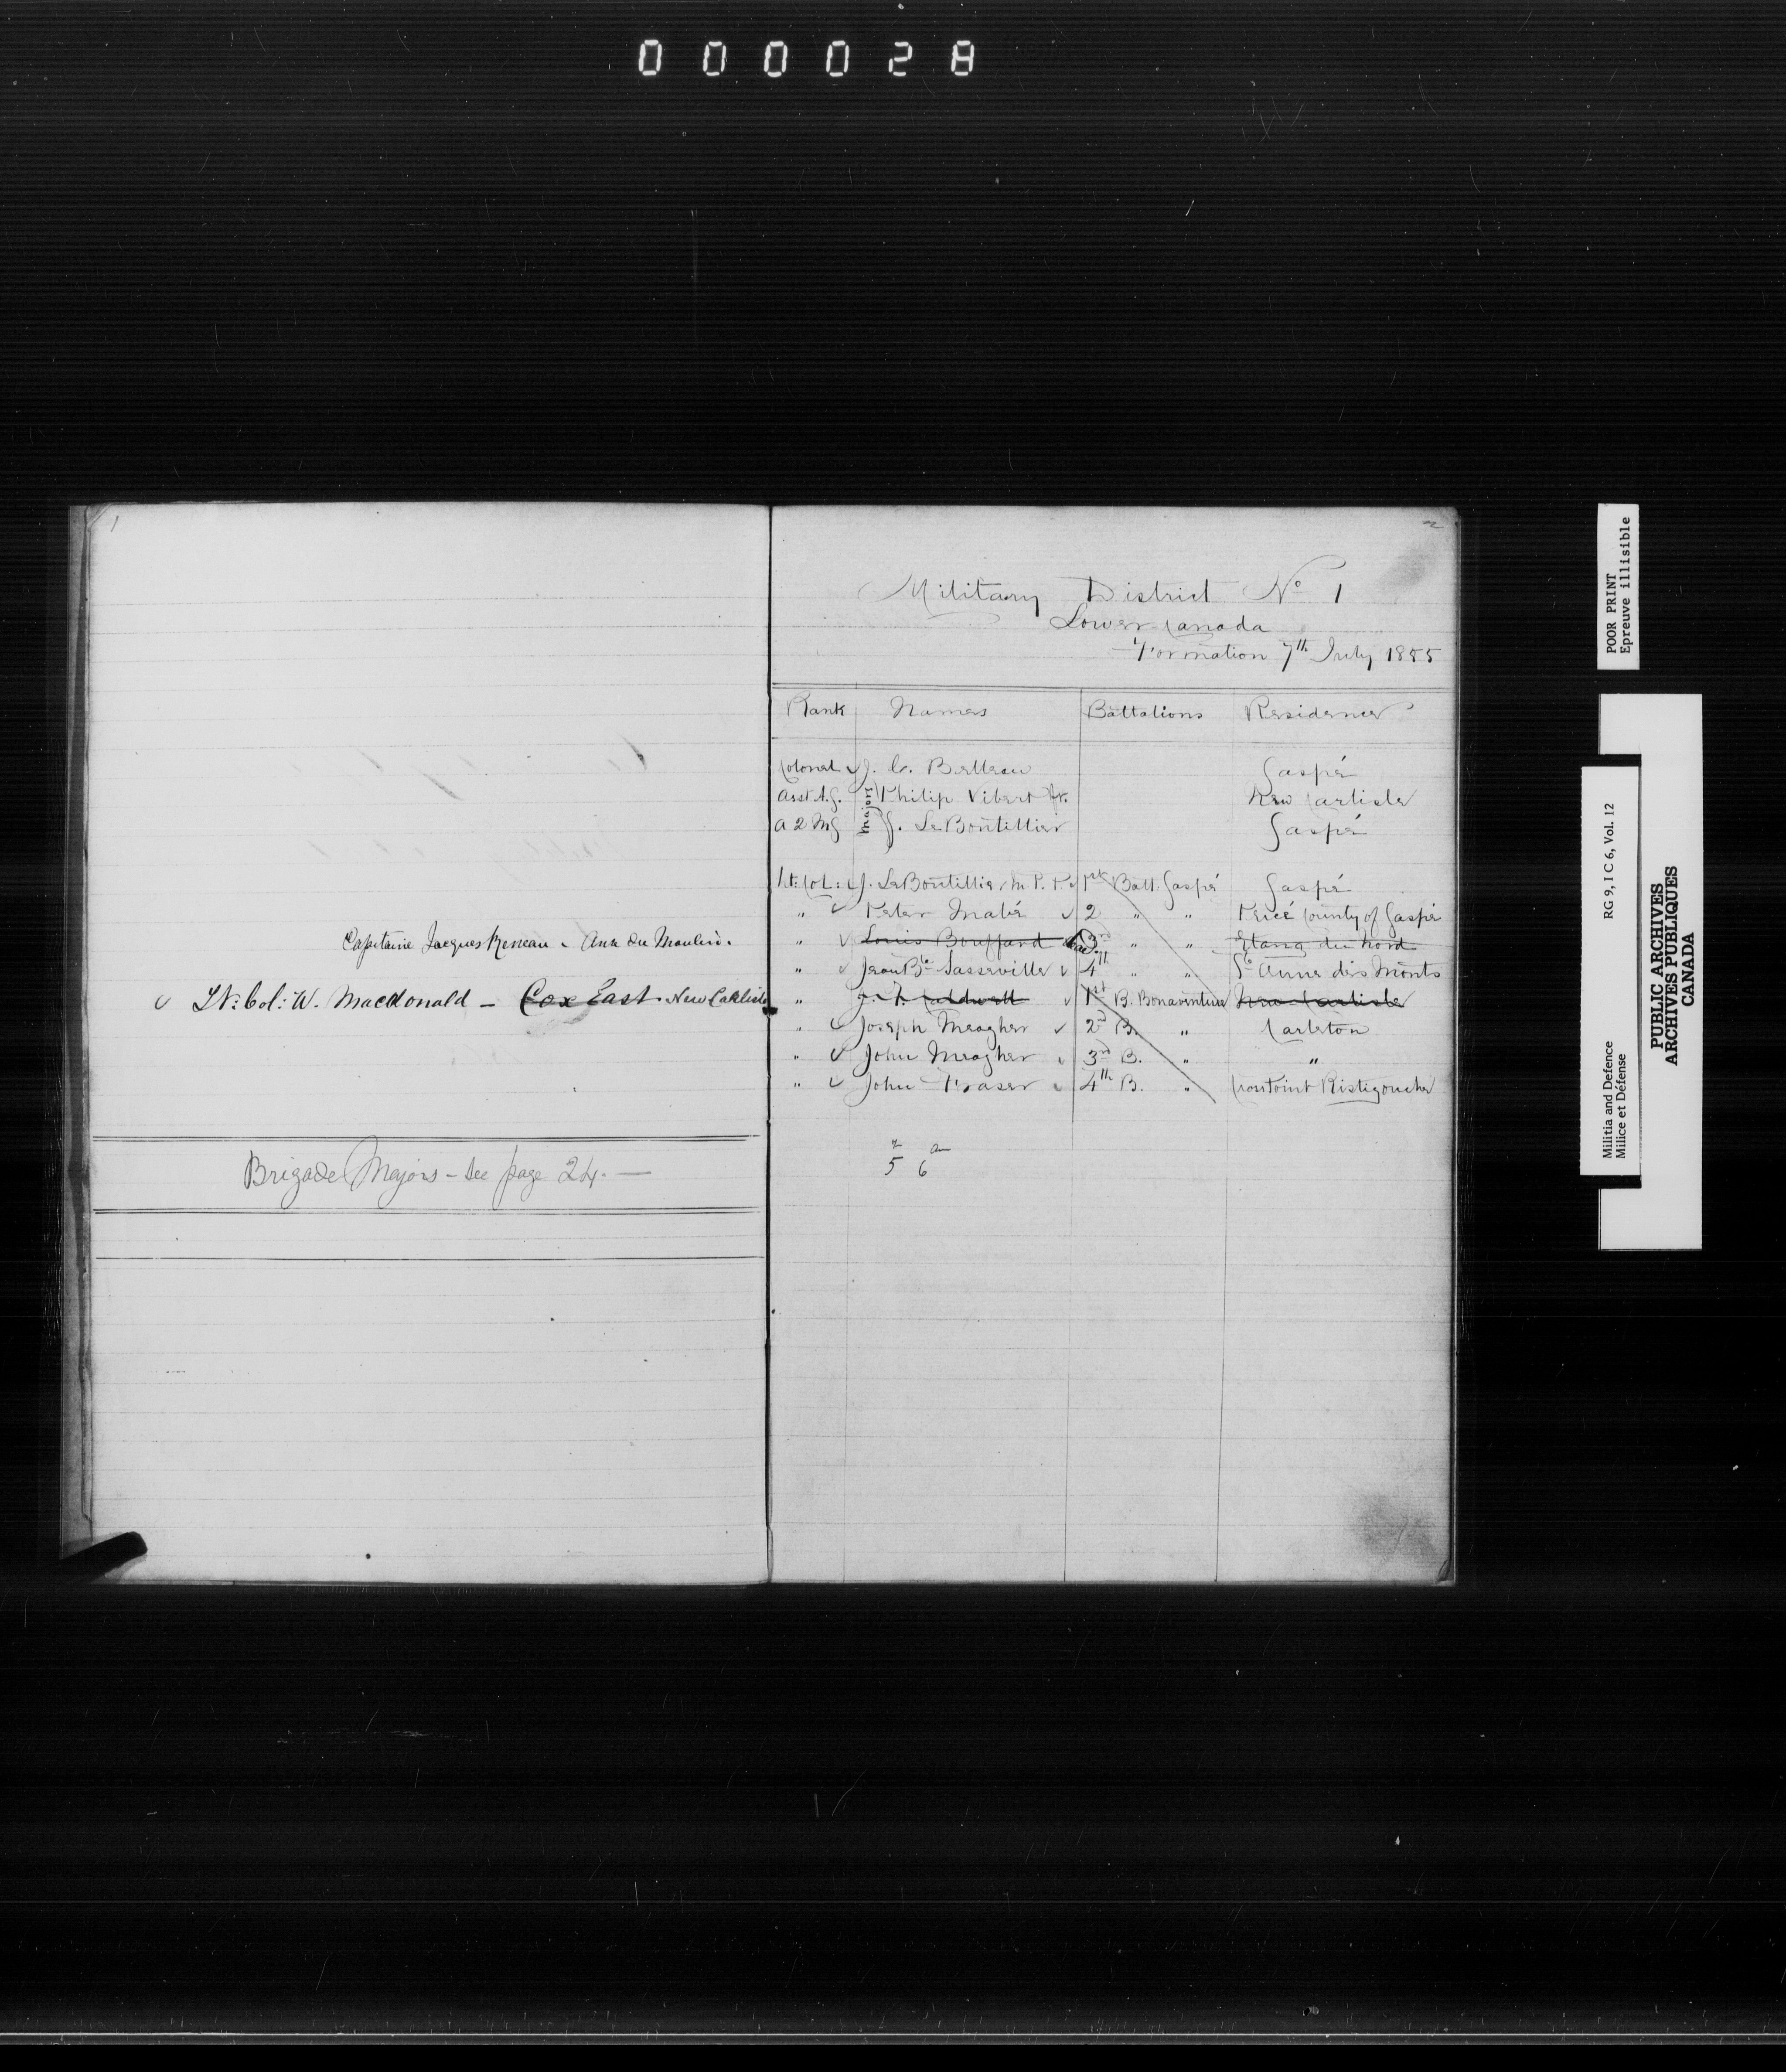 000028
1
Capitaine Jacques - Anse du Moulin.
Lt: Col: W. MacDonald - Cox East New Carlisle
Brigade Majors - See page 24. —
2
Military District No 1
Lower Canada
Formation 7th July 1855
Rank Names Battalions Residence
Colonel J. C. Belleau Gaspé
Asst A.G. Major Philip Vibert Jr. New Carlisle
A 2 M G J. LeBoutillier Gaspé
Lt: Col: J. LeBoutillier M.P.P. 1st Batt. Gaspé Gaspé
" Peter Mabé 2 " " Percé County of Gaspé
" Louis Bouffard 3rd " " Etang du Nord
" Jean Bte Sasseville 4th " " Ste Anne des Monts
" Caldwell 1st B. Bonaventure New Carlisle
" Joseph Meagher 2nd B. " Carleton
" John Meagher 3rd B. " "
" John Fraser 4th B. " Ristigouche
5 6
POOR PRINT
Epreuve illisible
Militia and Defence RG 9, I C 6, Vol. 12
Milice et Défense
PUBLIC ARCHIVES
ARCHIVES PUBLIQUES
CANADA